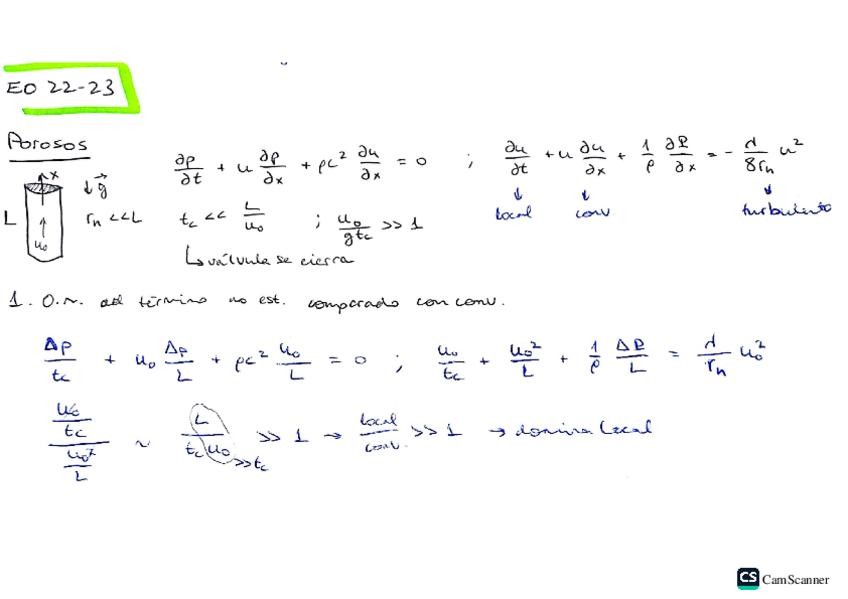 EO 22-23
Porosos
∂p/∂t + u ∂p/∂x + ρc² ∂u/∂x = 0 ; ∂u/∂t + u ∂u/∂x + 1/ρ ∂P/∂x = - λ/8rₕ u²
local conv turbulento
x ↓g⃗
L u₀ rₕ << L t꜀ << L/u₀ ; u₀/gt꜀ >> 1
↳ válvula se cierra
1. O.M. del término no est. comparado con conv.
Δp/t꜀ + u₀ Δp/L + ρc² u₀/L = 0 ; u₀/t꜀ + u₀²/L + 1/ρ ΔP/L = λ/rₕ u₀²
(u₀/t꜀)/(u₀²/L) ~ L/(t꜀ u₀) >> 1 → local/conv. >> 1 → domina local
>> t꜀
CS CamScanner